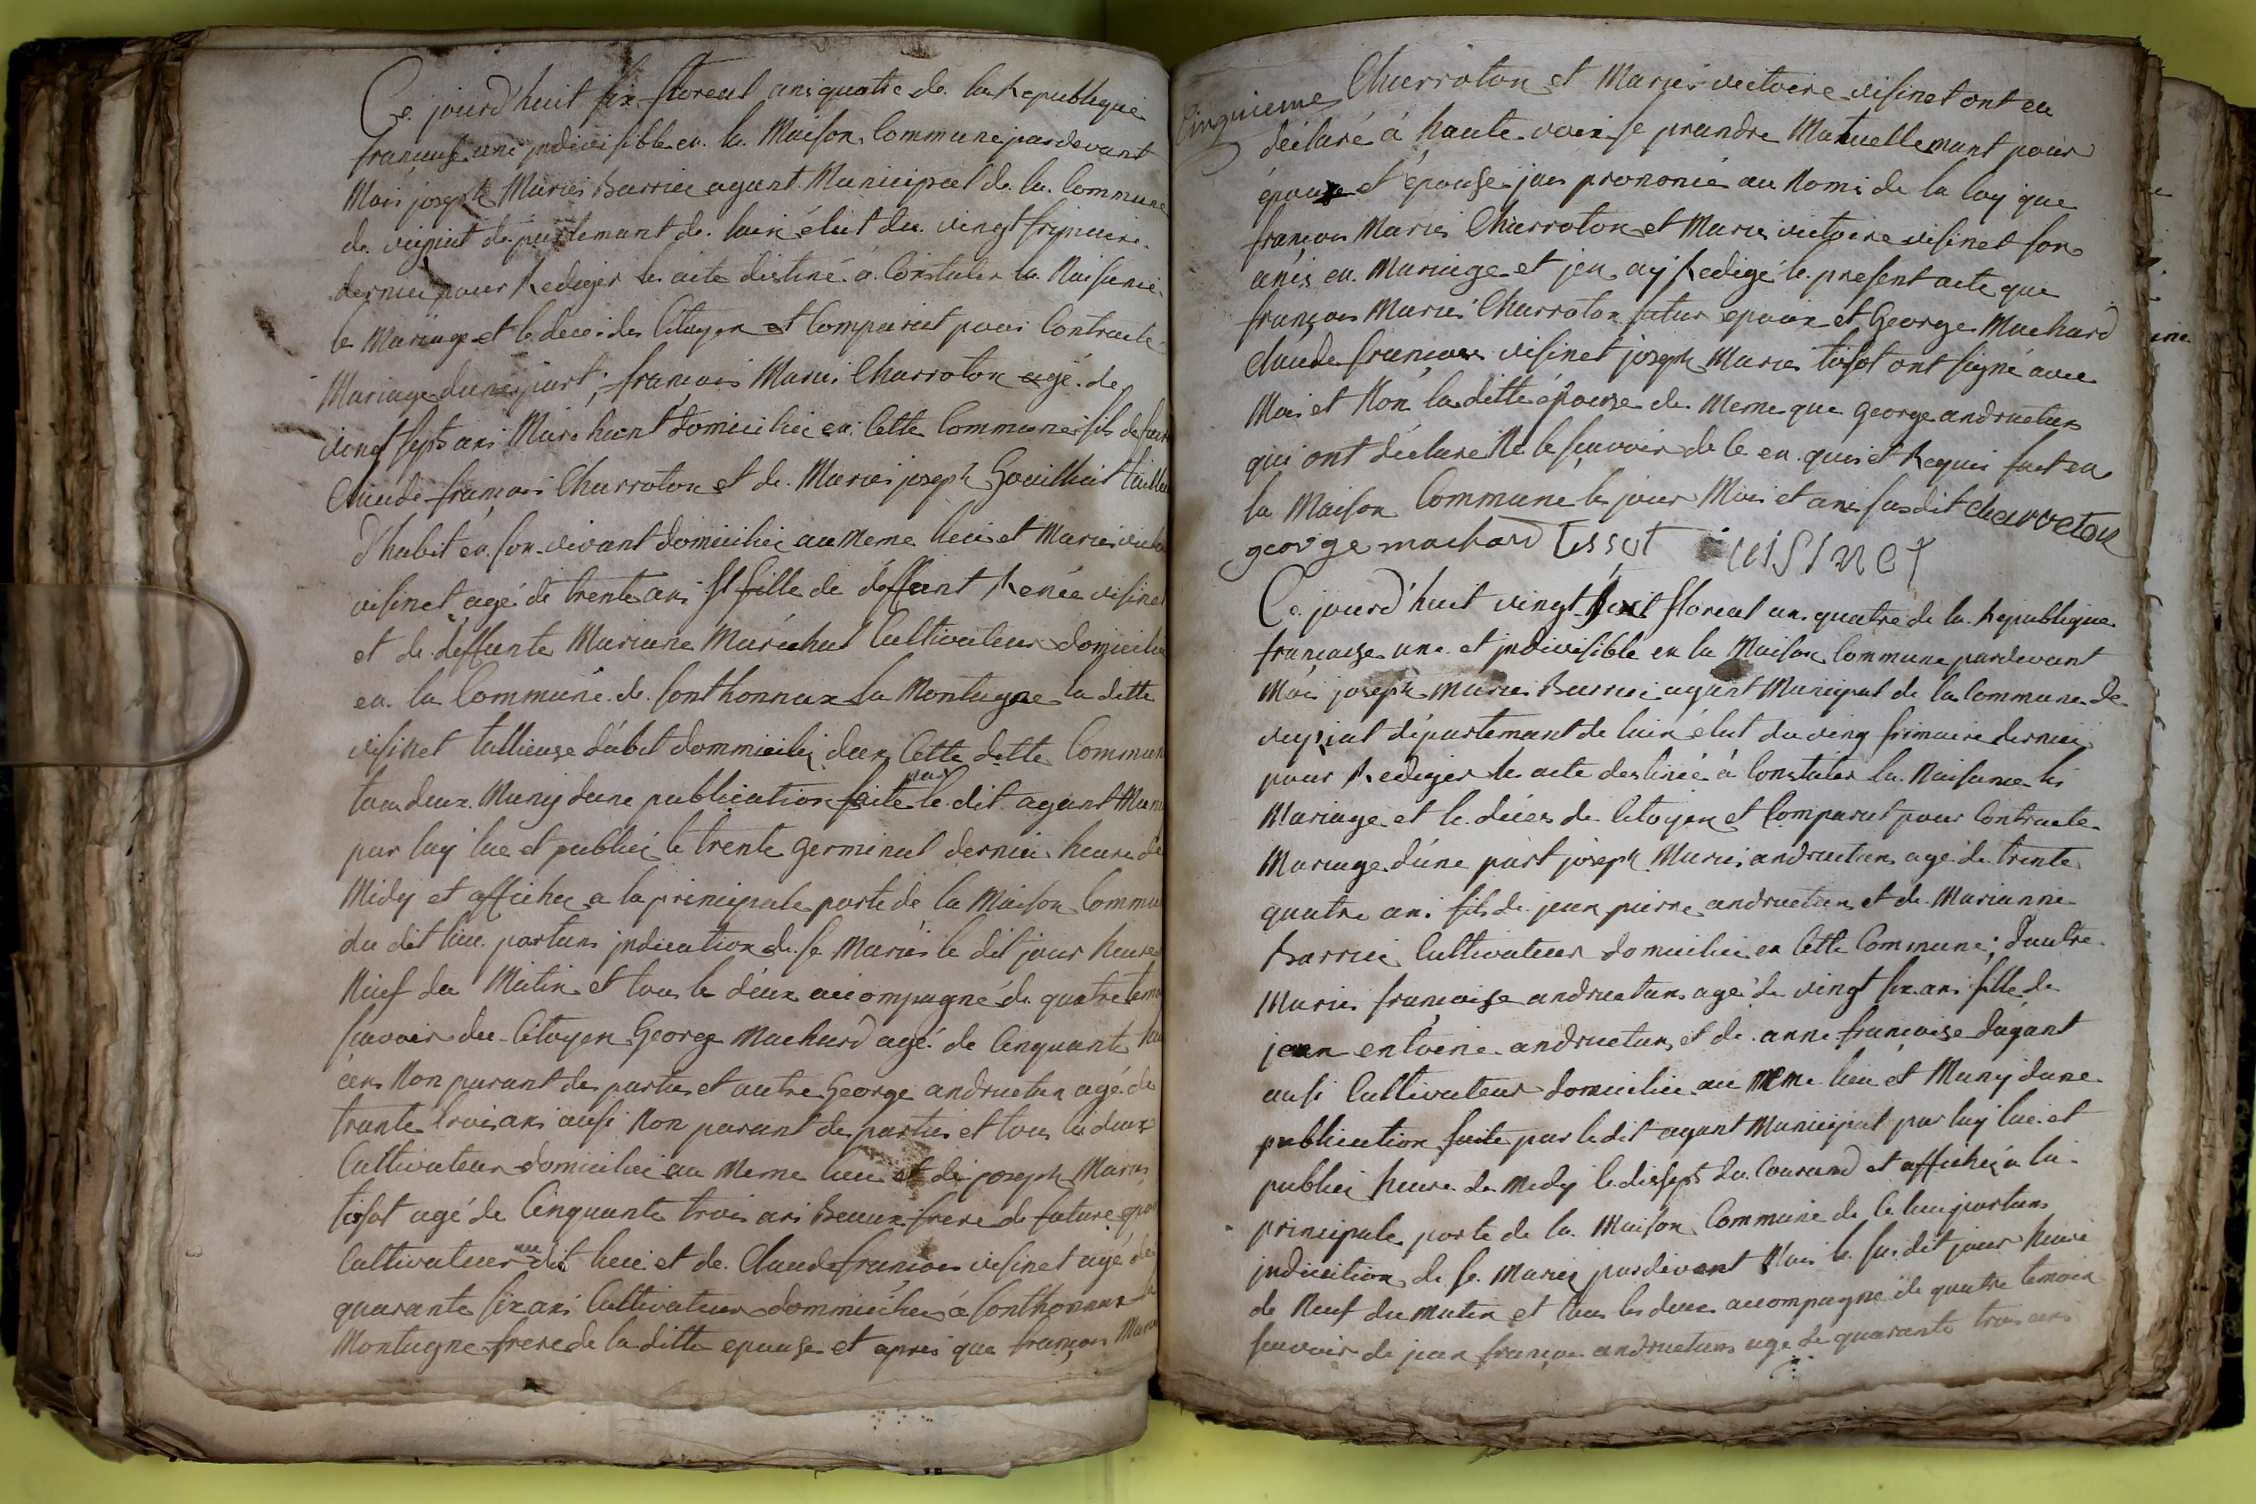 Ce jourd'huit six floreal ans quatre de la Republique
francaise une jndivisible en la Maison Commune pardevant
Moi joseph Maries Barrier agant Municipal de la Commune
de veiziat départemant de lain élut du vingt frimaire
dernier pour Rediger les acte distiné a Constater la Naisance
le Mariage et le deces des Citoyen et Comparut pour Contracte
Mariage dune part; francois Maries Charroton agé de
vingt sept ans Marchant domicilié en Cette Commune fils de feu
Claude francois Charroton et de Maries joseph Gouilloit
d'habit en son vivant domicilié au meme lieu et Maries
visinet agé de trente ans st fille de déffunt Renée visinet
et de deffunte Mariane Maréchal Cultivateur domicilié
en la Commune de Sonthonnax la Montagne la ditte
visinet tallieuse dabit dommicilié dans Cette ditte Commune
tous deux Muny dune publication faite par le dit agant
par luy lue et publiée le trente germinal dernier heure de
Midy et affichez a la principale porte de la Maison
du dit lieu portans jndication de se Mariés le dit jour heure
Neuf du Matin et tous les deux accompagné de quatre
scavoir du Citoyen George Machard agé de Cinquante
ans Non parant des partie et autre George andruetan agé de
trante trois ans ausi Non parant des partis et tous les deux
Cultivateur domicilié au Meme lieu et de joseph Maries
tisot agé de Cinquante trois ans Beaux frere de future
Cultivateur au dit lieu et de Claude francois visinet agé de
quarante six ans Cultivateur dommicilié à Sonthonnax la
Montagne frere de la ditte epouse et apres que francois Maries
Cinquieme
Charroton et Maries victoire visinet ont eu
déclaré à haute voix se prandre Mutuellemant pour
époux et épouse jai prononcé au Nome de la loy que
francois Maries Charroton et Maries victoire visinet son
anis en Mariage et jen ay Redigé le present acte que
françois Maries Charroton futur epoux et George Machard
Claude françois visinet joseph Maries tisot ont signé avec
Moi et Non la ditte épouse de Meme que George andruetan
qui ont déclaré Ne le scavoir de ce en quis et Requis fait en
la Maison Commune les jour Mois et ans susdit charroton
george machard tissot visinet
Ce jourd'huit vingt huit floreal an quatre de la Republique
francaise une et jndivisible en la Maison Commune pardevant
Moi joseph Maries Barrier agant Municipal de la Commune de
veyziat départemant de lain élut du ving frimaire dernier
pour Rediger les acte destinée à Constater la Naisance les
Mariage et le déces de Citoyen et Comparut pour Contracte
Mariage d'une part joseph Maries andruetan agé de trente
quatre ans fils de jean pierre andruetan et de Marianne
Barrier Cultivateur domicilié en Cette Commune; dautre
Maries francoise andruetan agé de vingt six ans fille de
jean entoine andruetan et de anne francoise dagant
ausi Cultivateur domicilié au meme lieu et Muny dune
publication faite par le dit agant Municipal par luy lue et
publiée heure de Midy le dissept du Courand et affichez a la
principale porte de la Maison Commune de Ce lieu portans
jndication de se Mariez pardevant Moi le susdit jour heure
de Neuf du Matin et tous les deux accompagné de quatre temoin
scavoir de jean françois andruetan agé de quarante trois ans